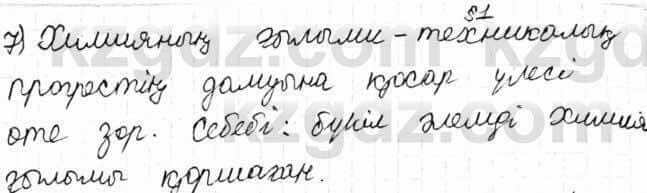 §1
7) Химияның ғылыми-техникалық
прогрестің дамуына қосар үлесі
өте зор. Себебі: бүкіл әлемді химия
ғылымы қоршаған.
kzgdz.com